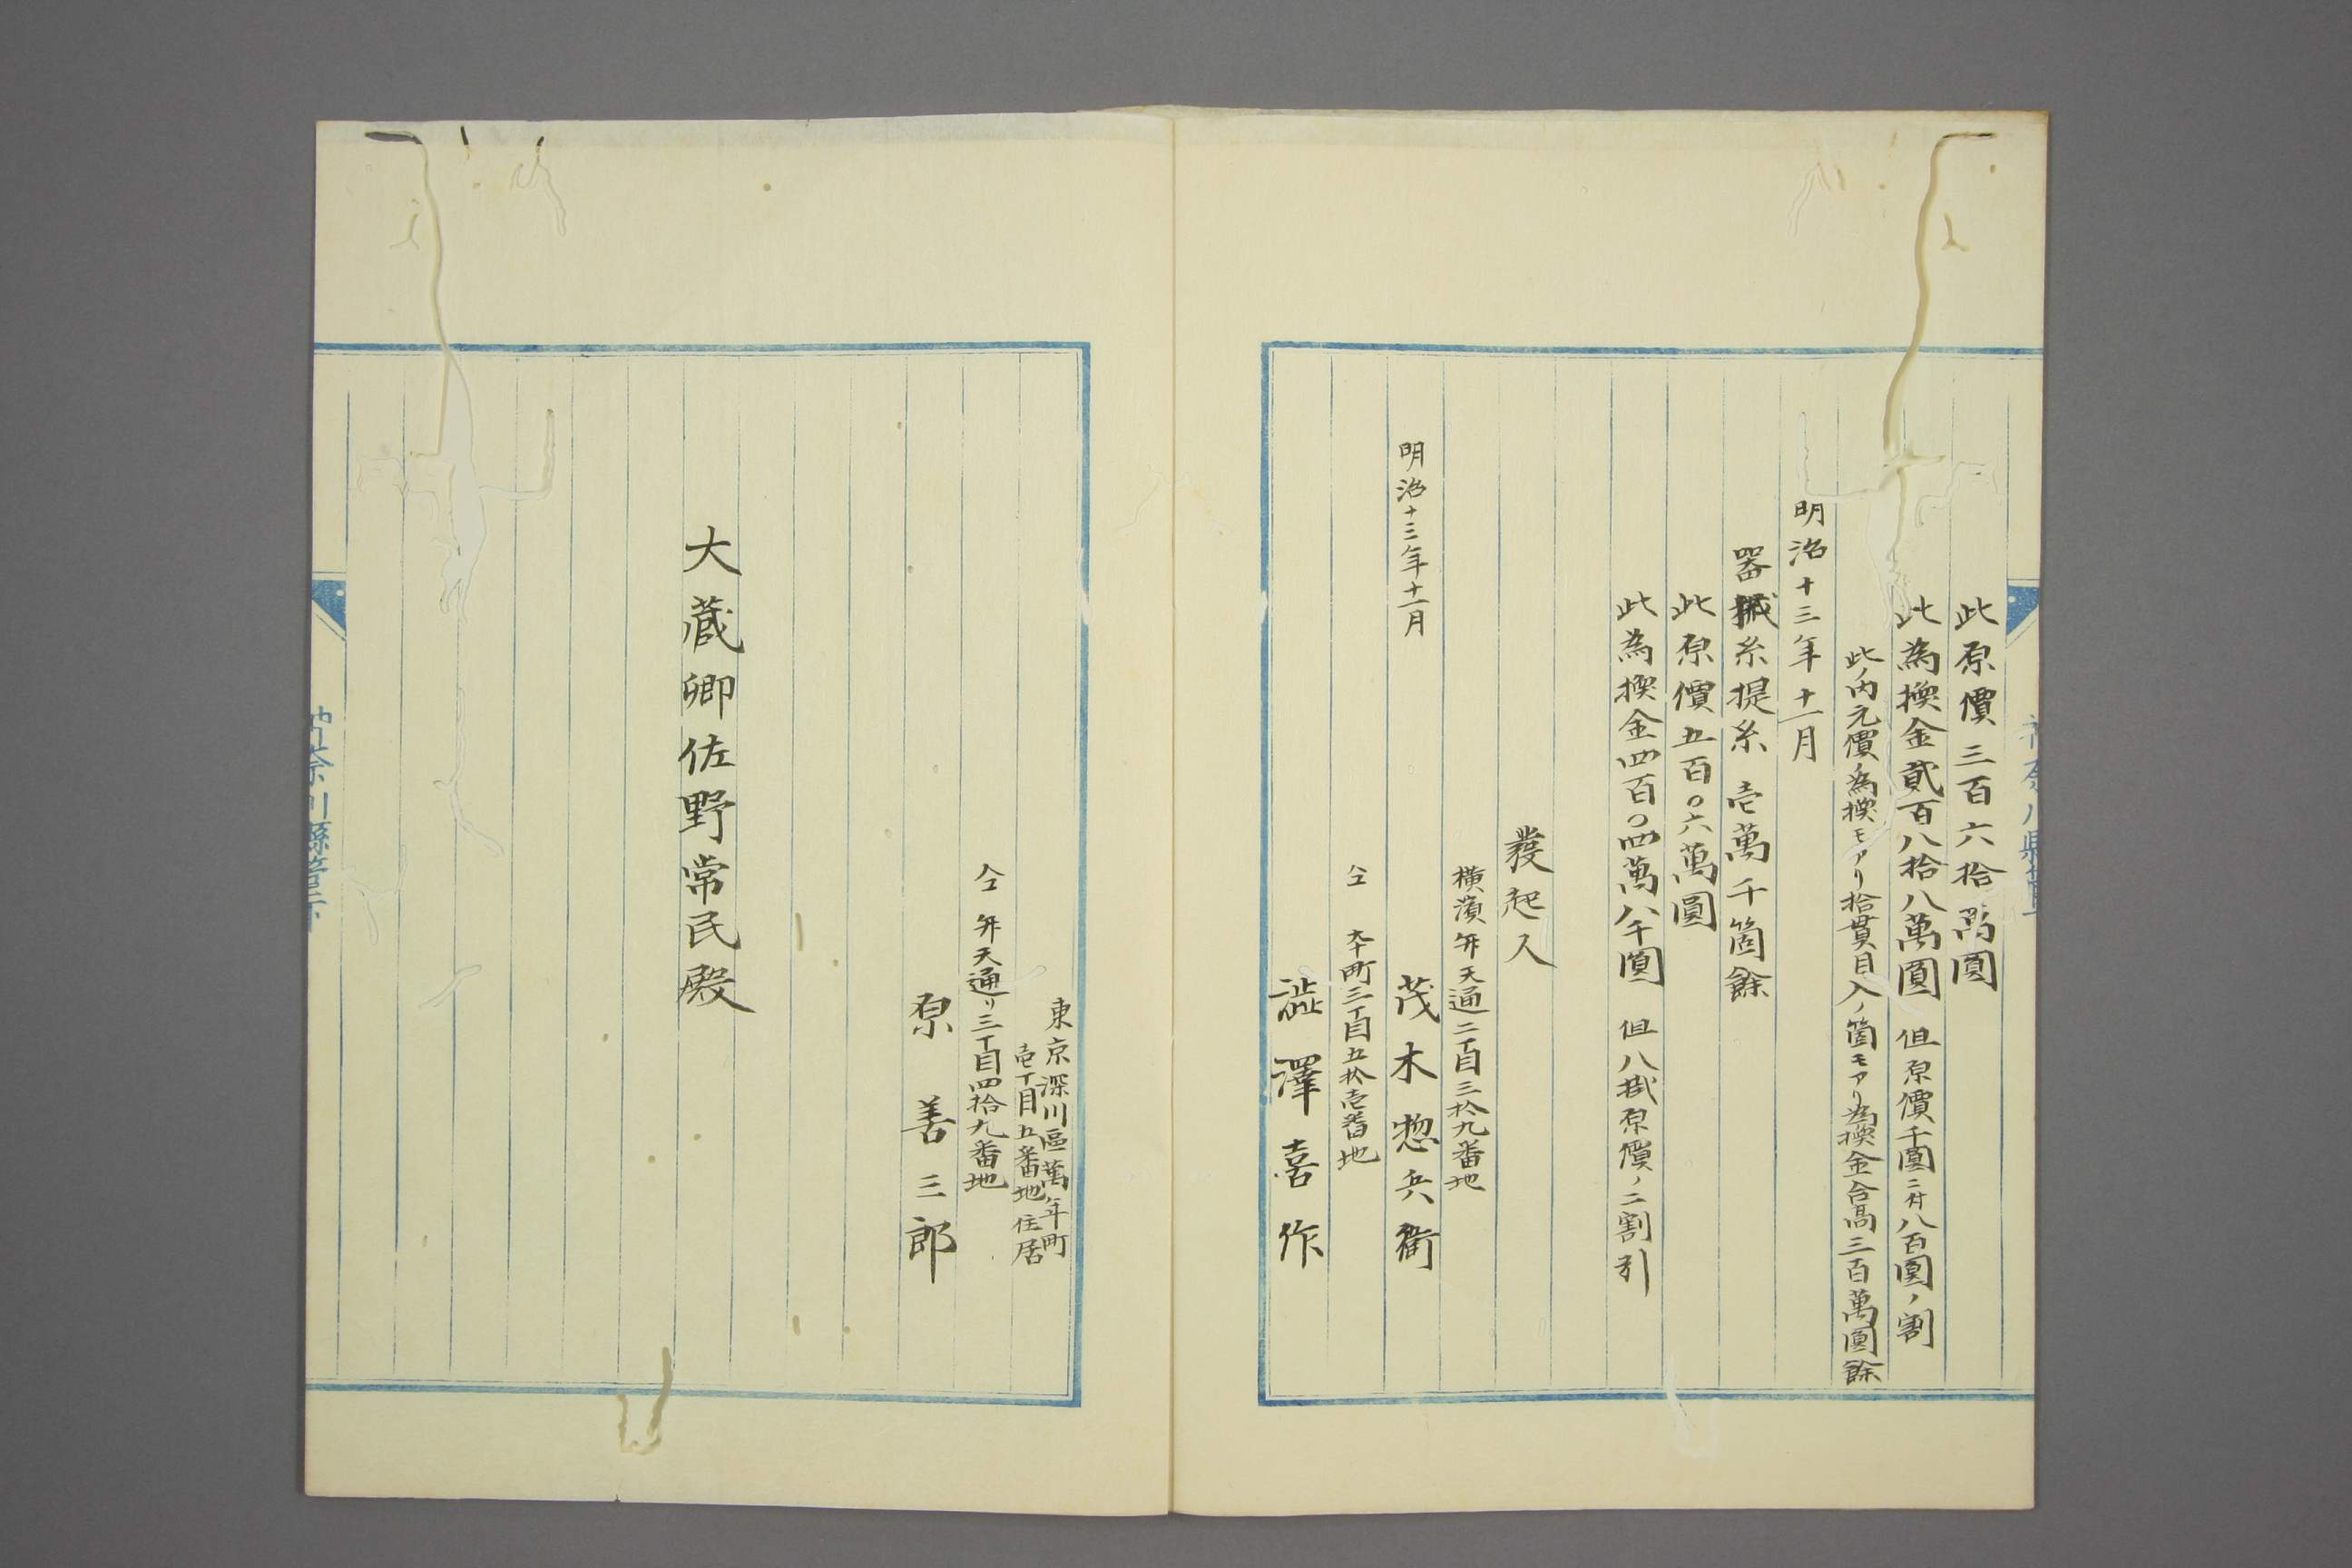 此原價三百六拾萬圓
此為換金貳百八拾八萬圓 但原價千圓ニ付八百圓ノ割
此ノ内元價為換モアリ拾貫目入ノ箇モアリ為換金合高三百萬圓餘
明治十三年十一月
器械糸提糸 壱萬千箇餘
此原價五百〇六萬圓
此為換金四百〇四萬八千圓 但八掛原價ノ二割引
發起人
横濱弁天通二丁目三拾九番地
明治十三年十一月
茂木惣兵衛
仝 本町三丁目五拾壱番地
澁澤喜作
東京深川區萬年町
壱丁目五番地住居
仝 弁天通リ三丁目四拾九番地
原善三郎
大蔵卿佐野常民殿
奈川縣